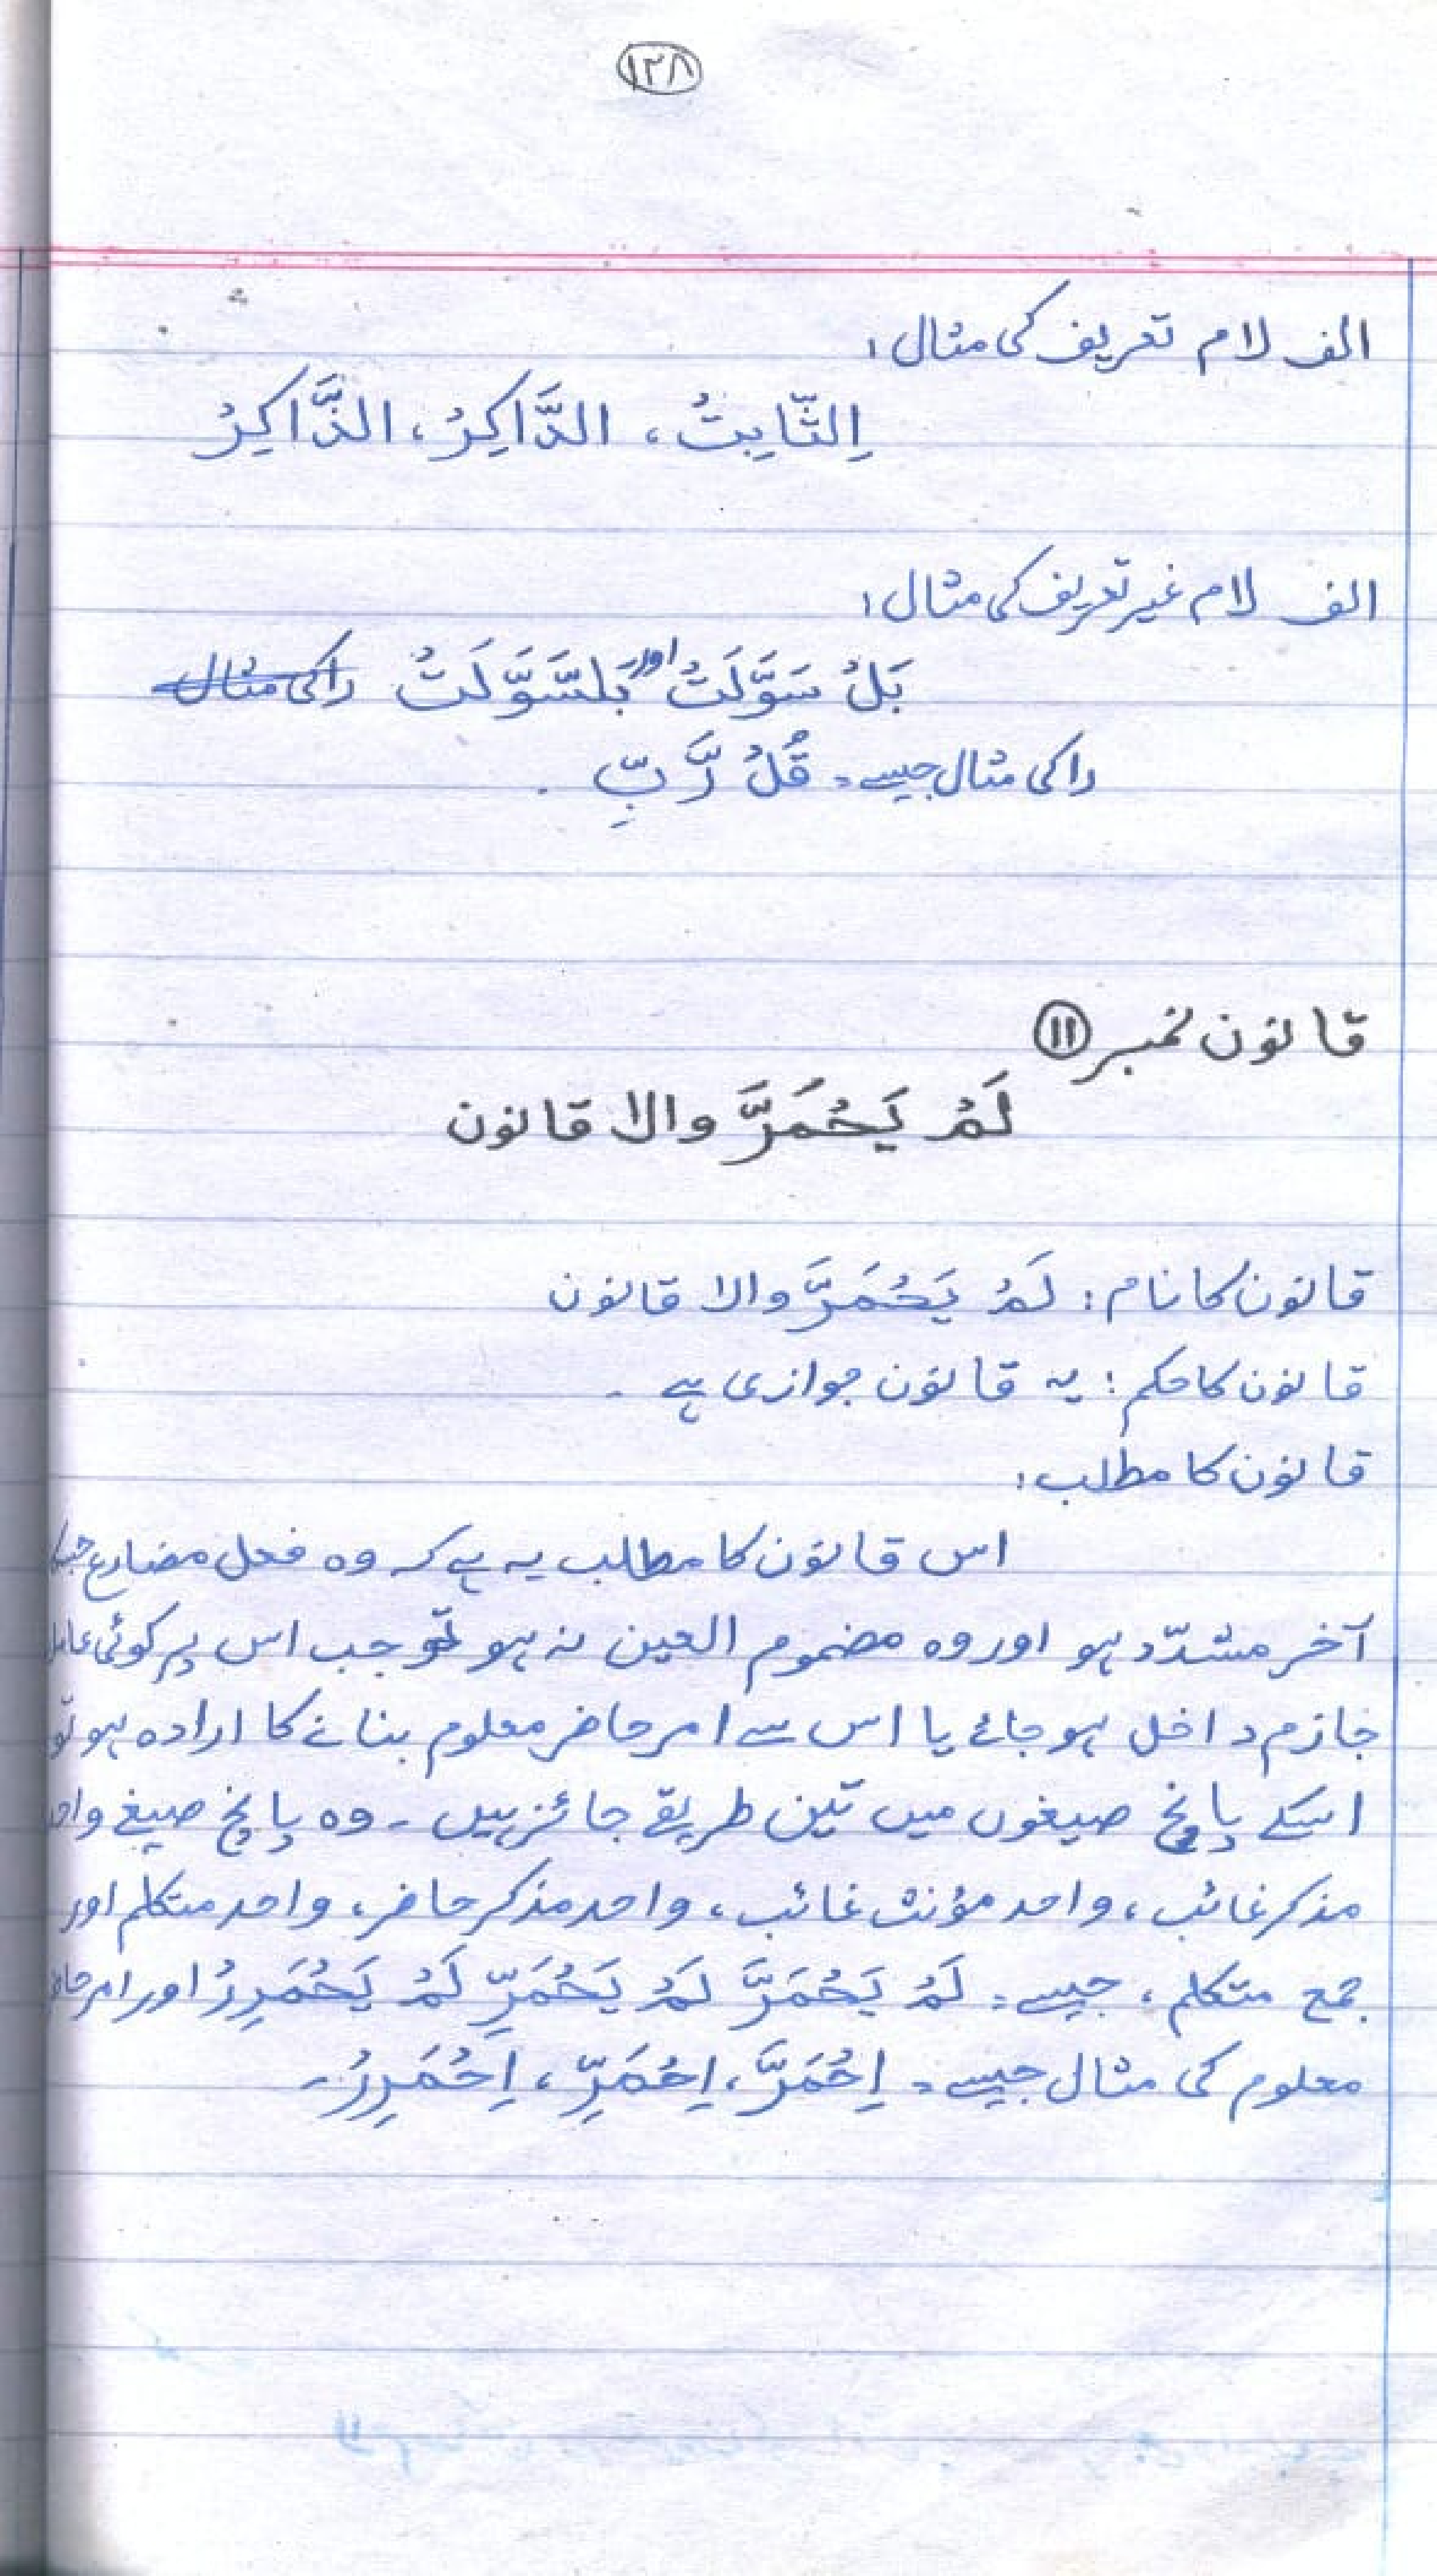 ۱۲۸
الف لام تعریف کی مثال:
اِلثَّابِتُ، الدَّاکِرُ، الذَّاکِرُ
الف لام غیر تعریف کی مثال:
بَلْ سَوَّلَتْ اور بَلسَّوَّلَتْ را کی مثال
را کی مثال جیسے۔ قُلْ رَّبِّ ۔
قانون نمبر ۱۱
لَمْ یَحْمَرَّ والا قانون
قانون کا نام: لَمْ یَحْمَرَّ والا قانون
قانون کا حکم: یہ قانون جوازی ہے ۔
قانون کا مطلب:
اس قانون کا مطلب یہ ہے کہ وہ فعل مضارع
آخر مشدّد ہو اور وہ مضموم العین نہ ہو تو جب اس پر کوئی عامل
جازم داخل ہو جائے یا اس سے امر حاضر معلوم بنانے کا ارادہ ہو تو
اسکے پانچ صیغوں میں تین طریقے جائز ہیں ۔ وہ پانچ صیغے
مذکر غائب، واحد مؤنث غائب، واحد مذکر حاضر، واحد متکلم اور
جمع متکلم، جیسے۔ لَمْ یَحْمَرَّ لَمْ یَحْمَرِّ لَمْ یَحْمَرِرْ اور امر
معلوم کی مثال جیسے۔ اِحْمَرَّ، اِحْمَرِّ، اِحْمَرِرْ ۔